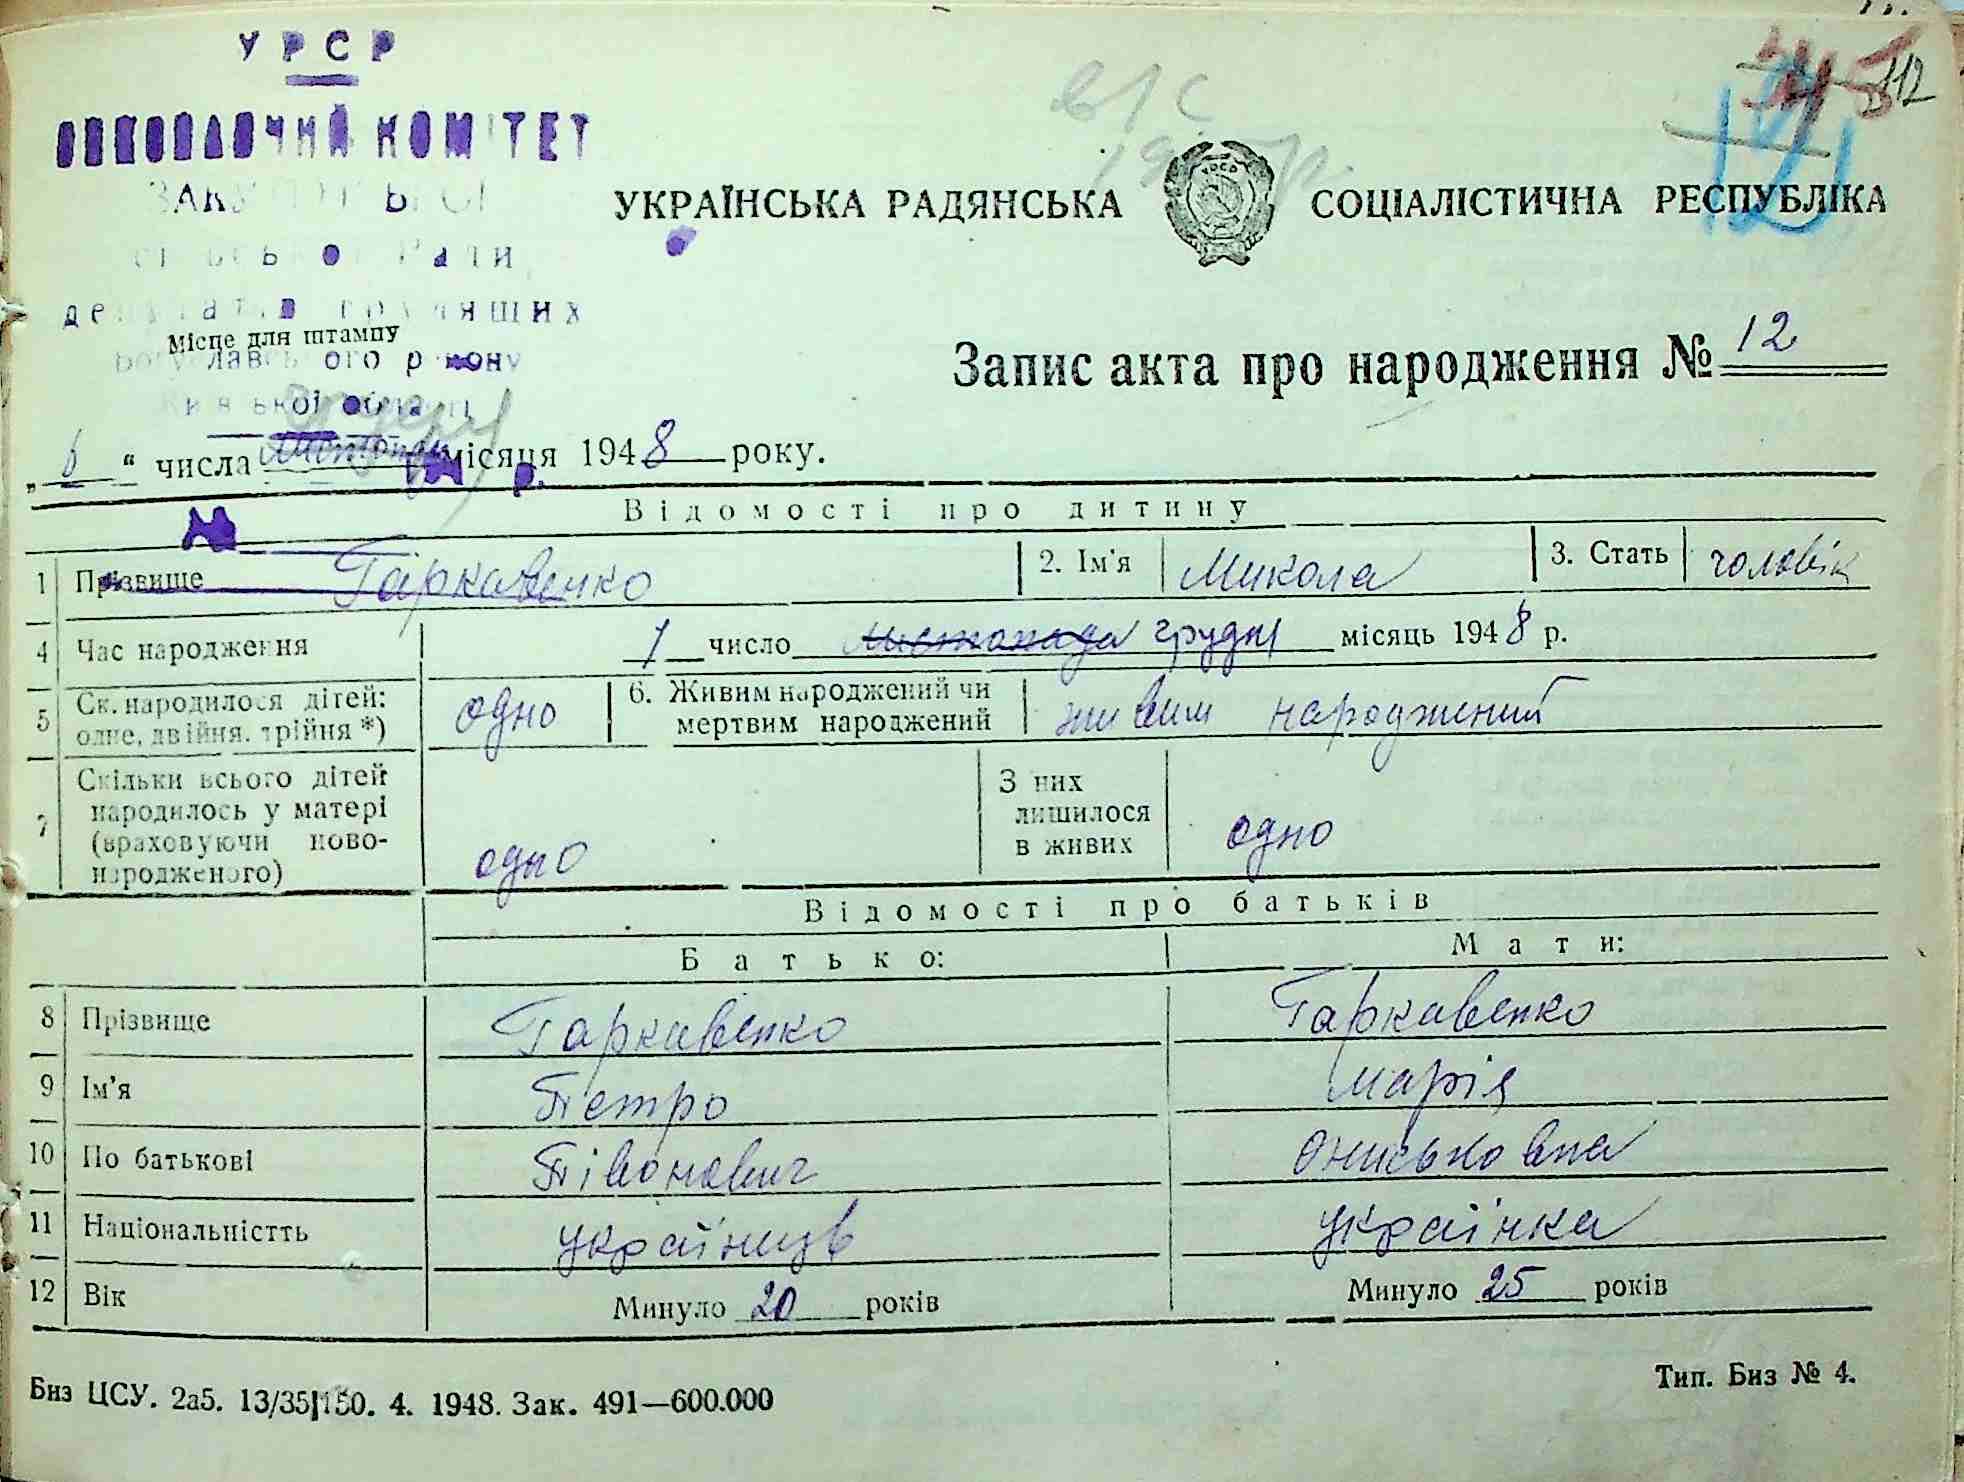 УРСР
КОМІТЕТ
депутатів трудящих
Місце для штампу
Богуславського району
Київської області
УКРАЇНСЬКА РАДЯНСЬКА СОЦІАЛІСТИЧНА РЕСПУБЛІКА
112
Запис акта про народження № 12
„6“ числа листопада місяця 1948 року.
Відомості про дитину
1 Прізвище Гаркавенко 2. Ім'я Микола 3. Стать чоловік
4 Час народження 1 число листопада грудня місяць 1948 р.
5 Ск. народилося дітей: одне, двійня, трійня *) одно 6. Живим народжений чи мертвим народжений живим народжений
7 Скільки всього дітей народилось у матері (враховуючи новонародженого) одно З них лишилося в живих одно
Відомості про батьків
Батько: Мати:
8 Прізвище Гаркавенко Гаркавенко
9 Ім'я Петро Марія
10 По батькові Півонович Ониськовна
11 Національністть українець українка
12 Вік Минуло 20 років Минуло 25 років
Биз ЦСУ. 2а5. 13/35|150. 4. 1948. Зак. 491—600.000 Тип. Биз № 4.